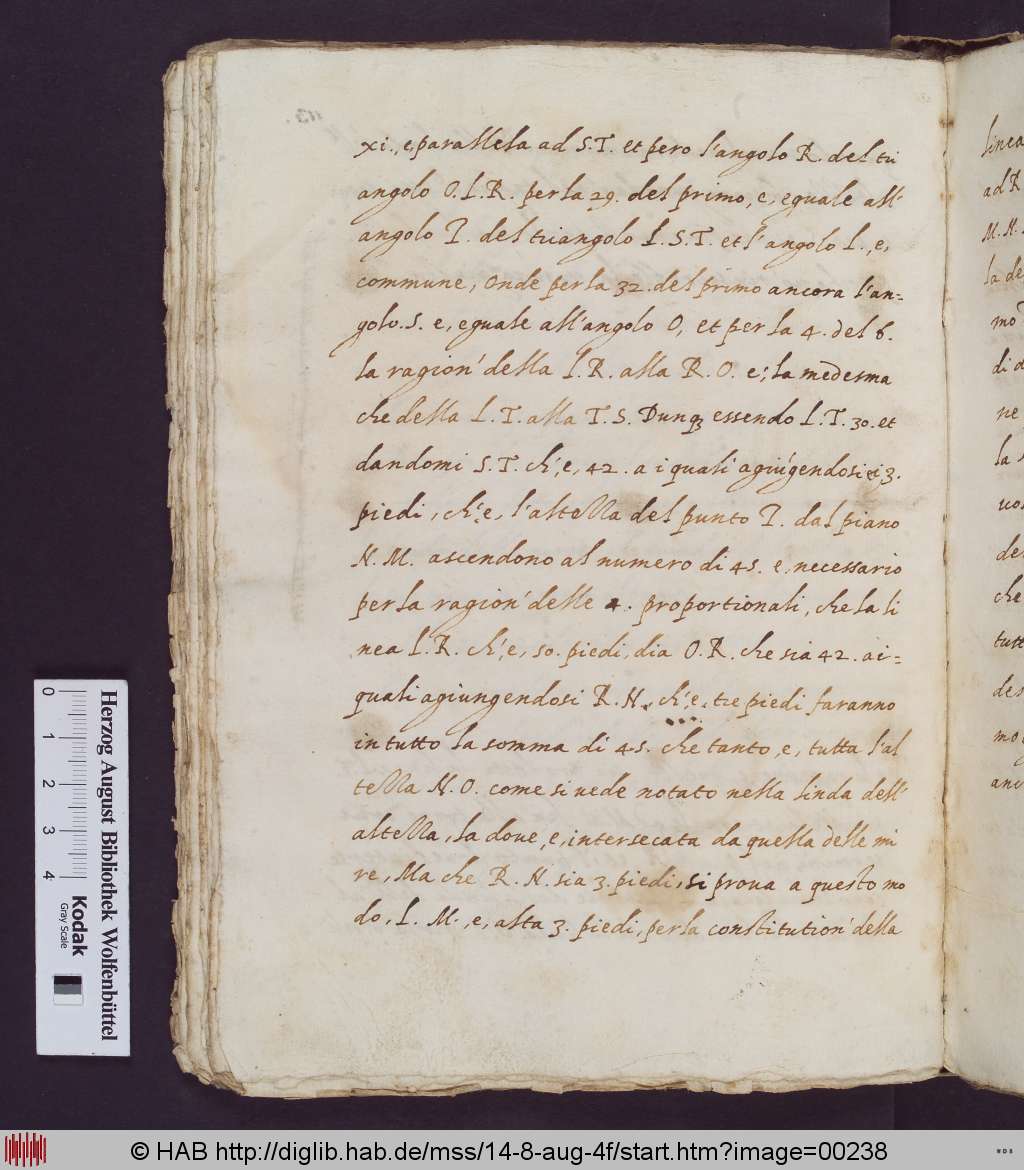 xi., e, parallela ad S.T. et pero l'angolo R. del tri
angolo O.I.R. per la 29. del primo, e, eguale all'
angolo T. del triangolo I.S.T. et l'angolo I., e,
commune, onde per la 32. del primo ancora l'an=
golo. S. e, eguale all'angolo O, et per la 4. del 6.
la ragion' della I.R. alla R.O. e; la medesma
che della I.T. alla T.S. Dunq; essendo I.T. 30. et
dandomi S.T. ch', e, 42. a i quali agiúgendosi i 3.
piedi, ch', e, l'altezza del punto T. dal piano
N.M. ascendono al numero di 45. e, necessario
per la ragion' delle 4. proportionali, che la li
nea I.R. ch', e, 50. piedi, dia O.R. che sia 42. ai=
quali agiungendosi R.N. ch', e, tre piedi faranno
in tutto la somma di 45. che tanto, e, tutta l'al
tezza N.O. come si uede notato nella linda dell'
altezza, la doue, e, intersecata da quella delle mi
re, Ma che R.N. sia 3. piedi, si proua a questo mo
do, I.M., e, alta 3. piedi, per la constitution' della
113.
linea
ad R
M.N.
la de
mo
di
ne
la
uo
de
che
tutt
des
mo
anc
Herzog August Bibliothek Wolfenbüttel
0 1 2 3 4
Kodak
Gray Scale
© HAB http://diglib.hab.de/mss/14-8-aug-4f/start.htm?image=00238